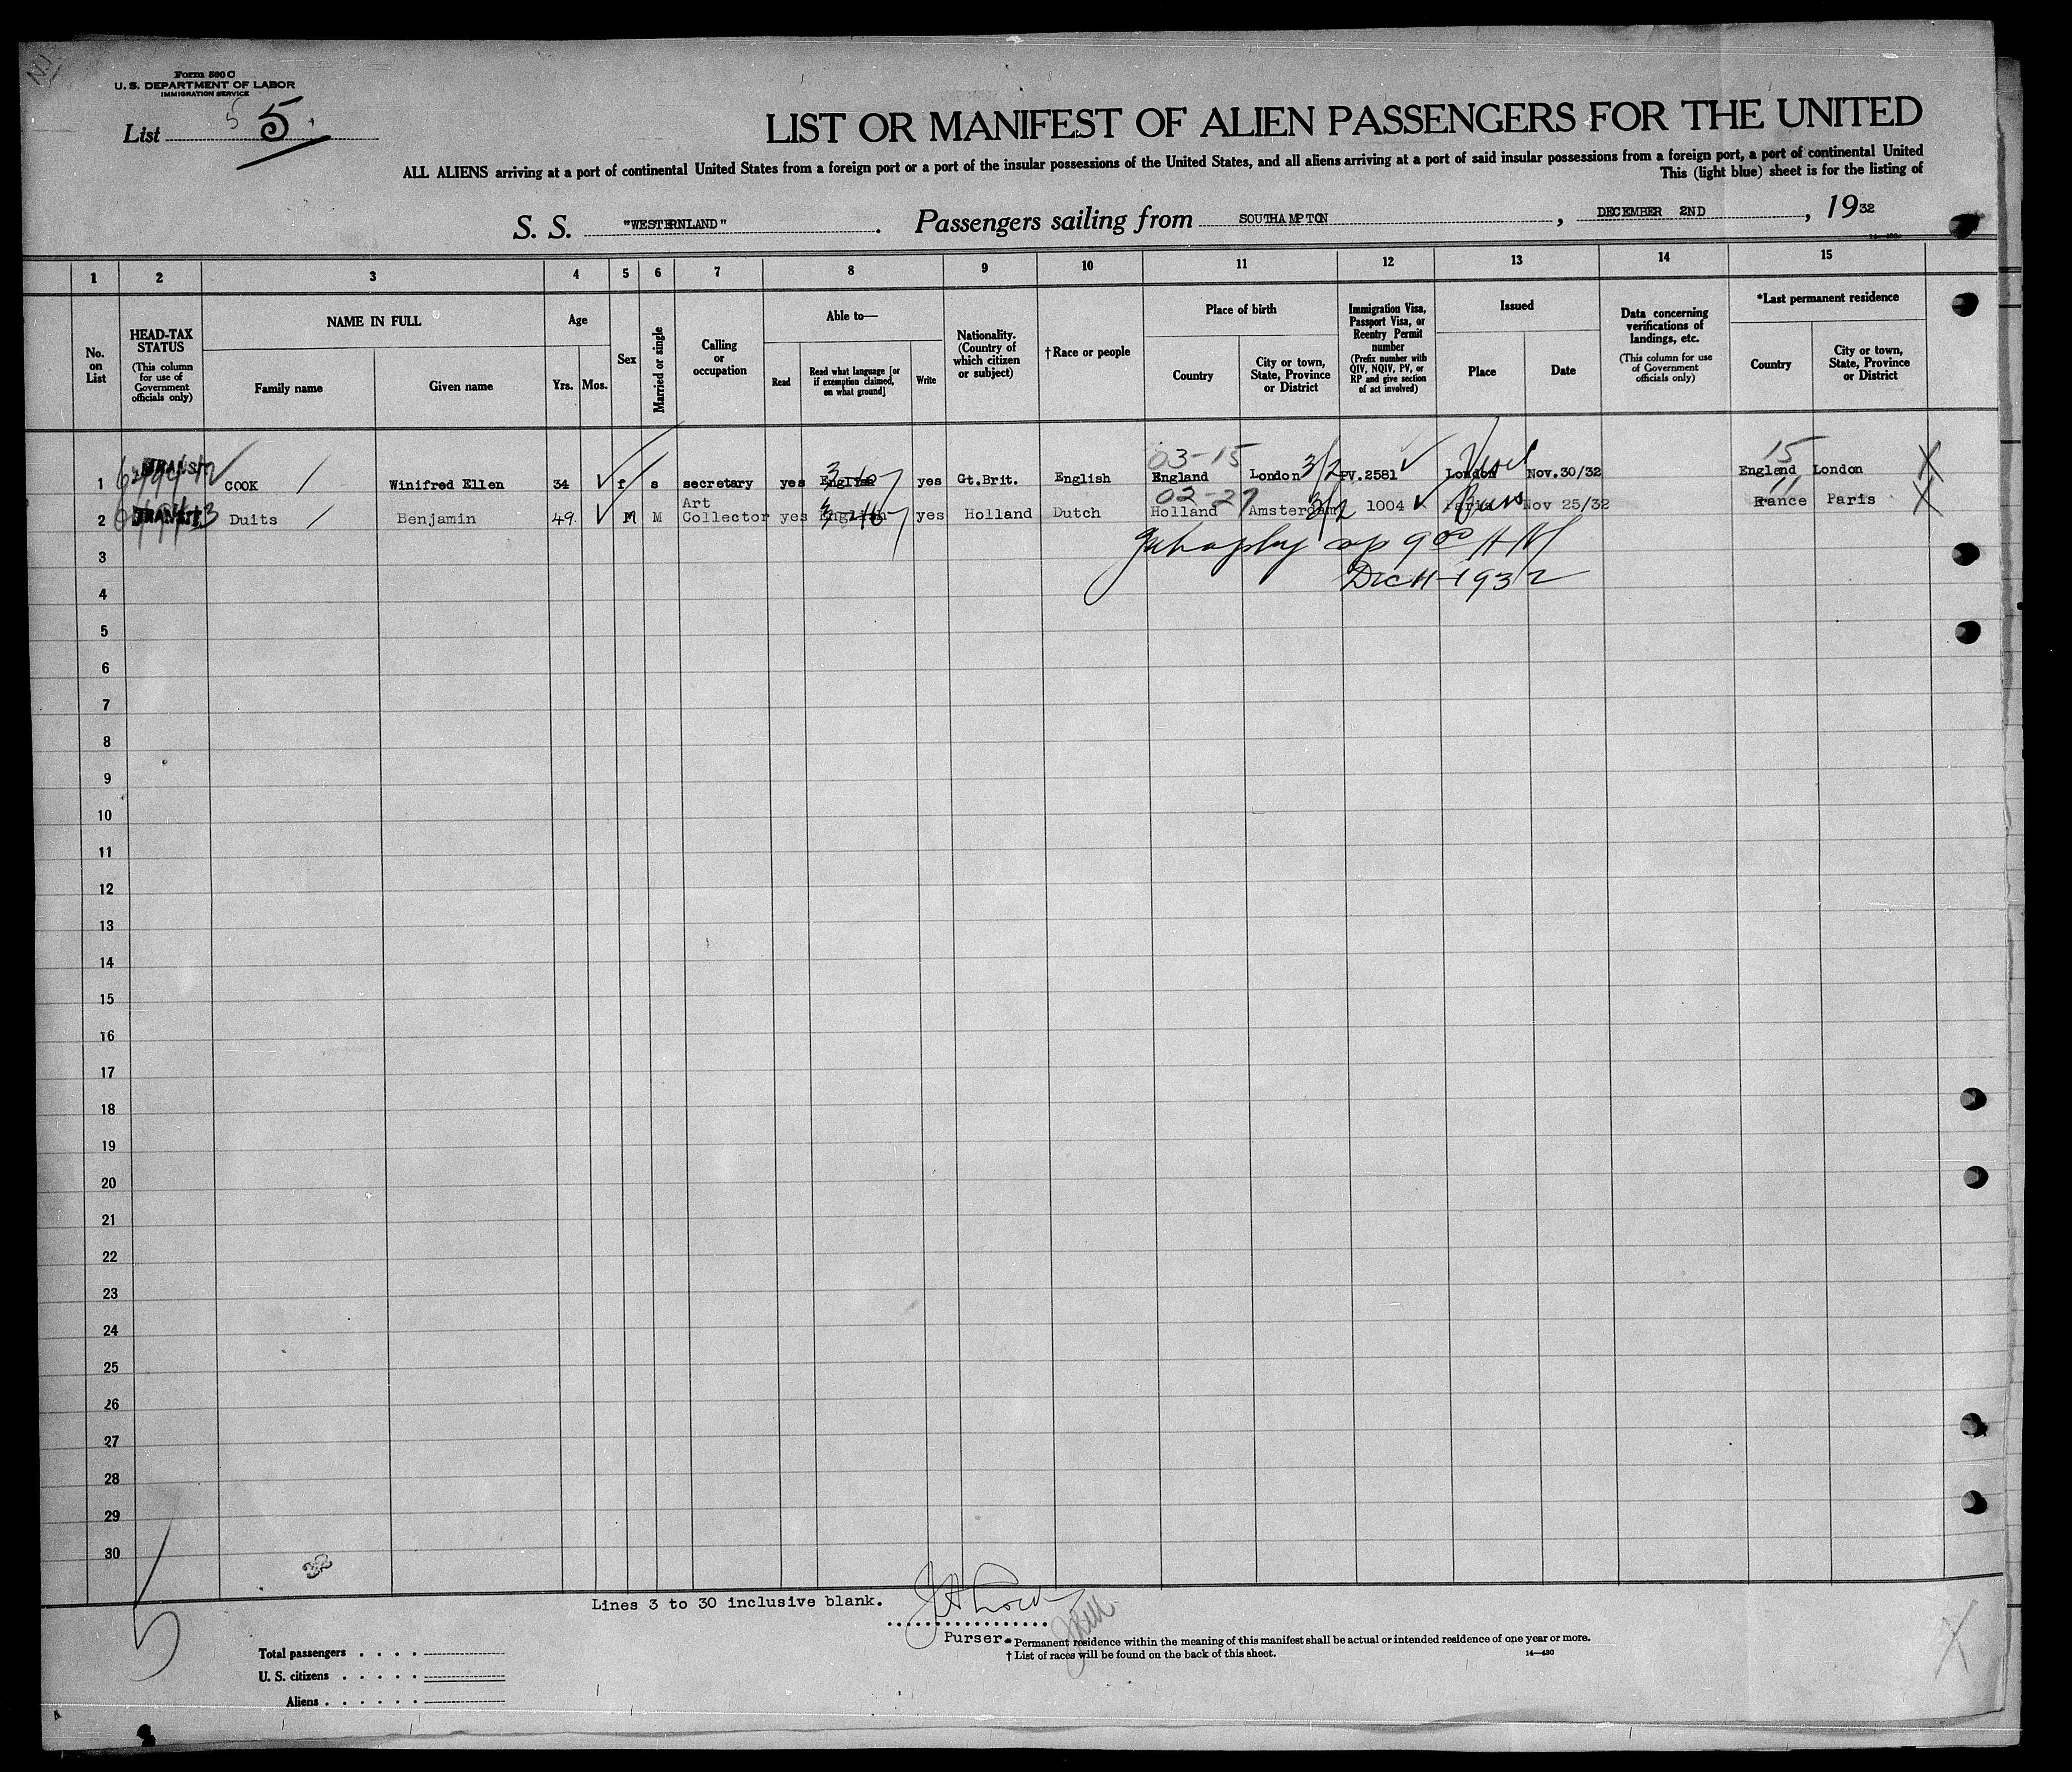 Form 500 C
U. S. DEPARTMENT OF LABOR
IMMIGRATION SERVICE
List 5 5.
LIST OR MANIFEST OF ALIEN PASSENGERS FOR THE UNITED
ALL ALIENS arriving at a port of continental United States from a foreign port or a port of the insular possessions of the United States, and all aliens arriving at a port of said insular possessions from a foreign port, a port of continental United
This (light blue) sheet is for the listing of
S. S. "WESTERNLAND". Passengers sailing from SOUTHAMPTON, DECEMBER 2ND, 1932
1 2 3 4 5 6 7 8 9 10 11 12 13 14 15
No. on List
HEAD-TAX STATUS
(This column for use of Government officials only)
NAME IN FULL
Family name
Given name
Age
Yrs.
Mos.
Sex
Married or single
Calling or occupation
Able to—
Read
Read what language [or if exemption claimed, on what ground]
Write
Nationality. (Country of which citizen or subject)
†Race or people
Place of birth
Country
City or town, State, Province or District
Immigration Visa, Passport Visa, or Reentry Permit number
(Prefix number with QIV, NQIV, PV, or RP and give section of act involved)
Issued
Place
Date
Data concerning verifications of landings, etc.
(This column for use of Government officials only)
*Last permanent residence
Country
City or town, State, Province or District
03-15
15
1 TRANSIT COOK Winifred Ellen 34 f s secretary yes English yes Gt.Brit. English England London 3/2 PV.2581 London Nov.30/32 England London
02-27
11
2 TRANSIT Duits Benjamin 49 M M Art Collector yes English yes Holland Dutch Holland Amsterdam 3/2 1004 Paris Nov 25/32 France Paris
9 00 AM
3
Dec 11-1932
4
5
6
7
8
9
10
11
12
13
14
15
16
17
18
19
20
21
22
23
24
25
26
27
28
29
30
32
Lines 3 to 30 inclusive blank.
5
Purser.
* Permanent residence within the meaning of this manifest shall be actual or intended residence of one year or more.
† List of races will be found on the back of this sheet.
14—430
Total passengers
U. S. citizens
Aliens